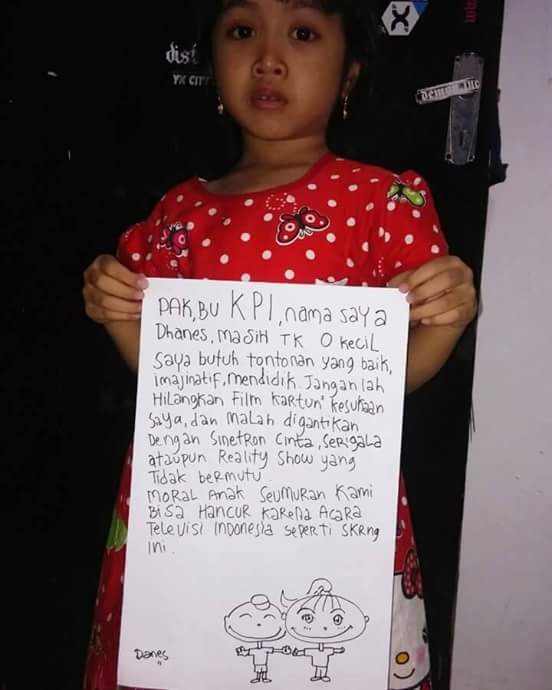 dist
YK CITY
X
DEMON INC
PAK, BU KPI, nama saya
Dhanes, MASIH TK O KeciL
Saya butuh tontonan yang baik,
imajinatif, mendidik. Jangan lah
HiLangkan FiLm KARtun² kesukaan
saya, dan MaLah digantikan
Dengan Sinetron Cinta, Serigala
ataupun Reality Show yang
Tidak bermutu.
MORAL Anak Seumuran Kami
Bisa Hancur Karena Acara
TeLevisi Indonesia Seperti SKRng
ini.
Danes